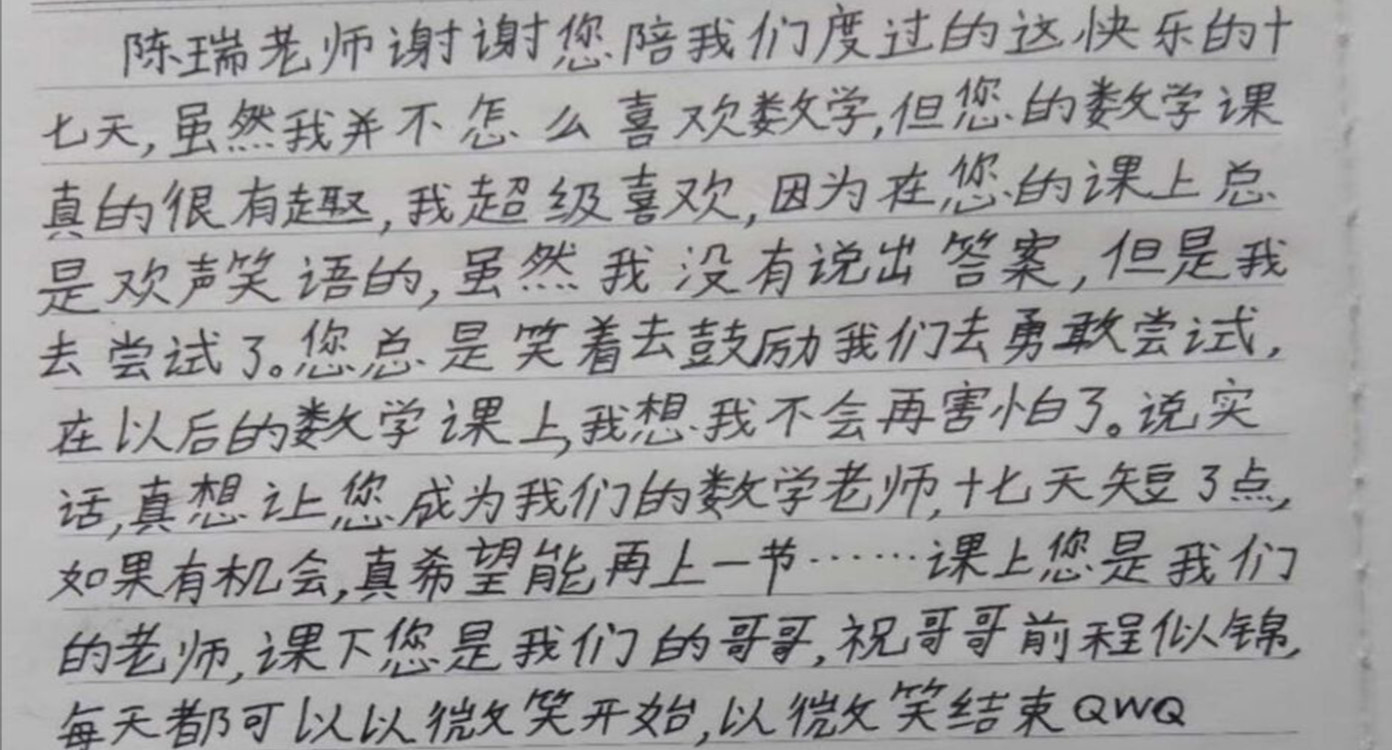 陈瑞老师谢谢您陪我们度过的这快乐的十
七天,虽然我并不怎么喜欢数学,但您的数学课
真的很有趣,我超级喜欢,因为在您的课上总
是欢声笑语的,虽然我没有说出答案,但是我
去尝试了。您总是笑着去鼓励我们去勇敢尝试,
在以后的数学课上,我想我不会再害怕了。说实
话,真想让您成为我们的数学老师,十七天短了点,
如果有机会,真希望能再上一节……课上您是我们
的老师,课下您是我们的哥哥,祝哥哥前程似锦,
每天都可以以微笑开始,以微笑结束QWQ